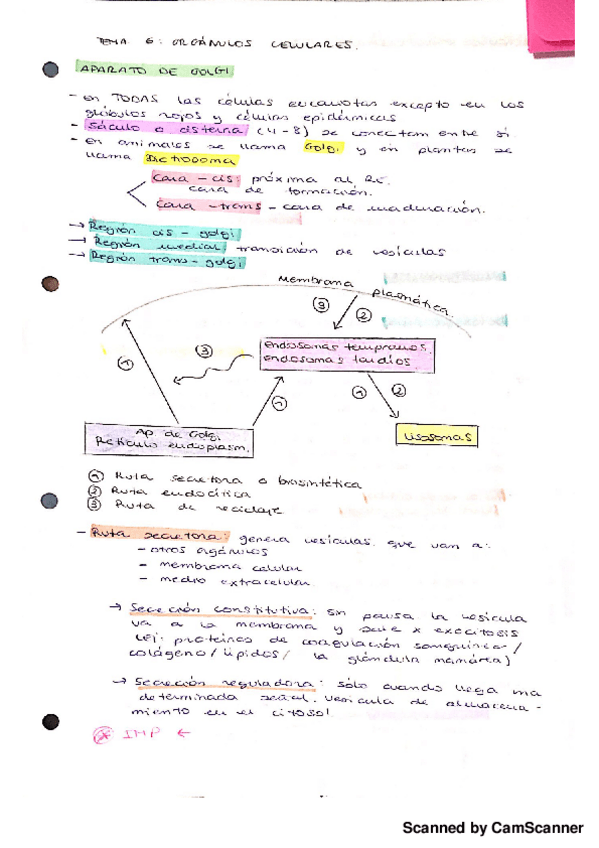 TEMA 6: ORGÁNULOS CELULARES.
APARATO DE GOLGI
- en TODAS las células eucariotas excepto en los
glóbulos rojos y células epidérmicas
- Sáculo o cisterna (4-8) se conectan entre si.
- en animales se llama Golgi y en plantas se
llama Dictiosoma
Cara-cis: próxima al RE.
cara de formación.
Cara-trans - cara de maduración.
→ Región cis-golgi
→ Región medial transición de vesículas
→ Región trans-golgi
Membrana plasmática.
③ ②
endosomas tempranos.
endosomas tardíos
① ③
① ① ②
Ap. de Golgi
Retículo endoplasm.
Lisosomas
① Ruta secretora o biosintética
② Ruta endocítica
③ Ruta de reciclaje
- Ruta secretora: genera vesículas que van a:
- otros orgánulos
- membrana celular
- medio extracelular
→ Secreción constitutiva: sin pausa la vesícula
va a la membrana y sale x exocitosis
(ej: proteínas de coagulación sanguínea/
colágeno/lípidos/ la glándula mamaria)
→ Secreción reguladora: sólo cuando llega una
determinada señal. vesícula de almacena-
miento en el citosol
IMP ←
Scanned by CamScanner